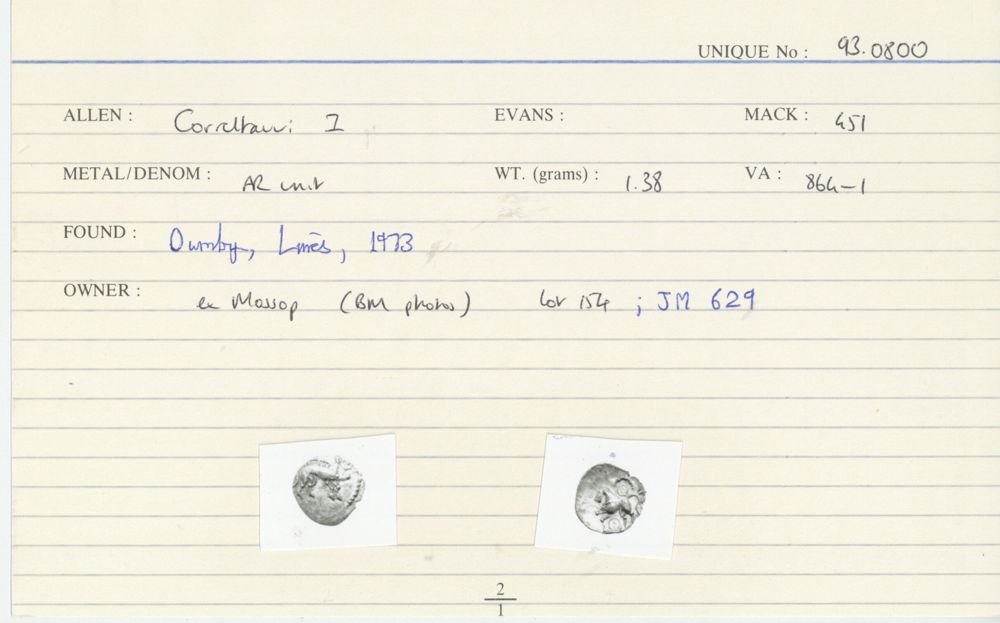 UNIQUE No : 93.0800
ALLEN : Correltauvi I EVANS : MACK : 451
METAL/DENOM : AR unit WT. (grams) : 1.38 VA : 864-1
FOUND : Owmby, Lincs, 1973
OWNER : ex Mossop (BM photos) lot 154 ; JM 629
2
1